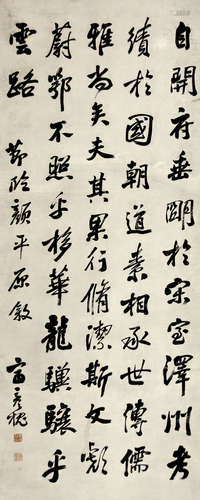 自開府垂國於宋室澤州考
績於國朝道素相承世傳儒
雅尚矣夫其果行脩潔斯文彪
蔚鄂不照乎移華龍驥驤乎
雲路
節臨顏平原敘